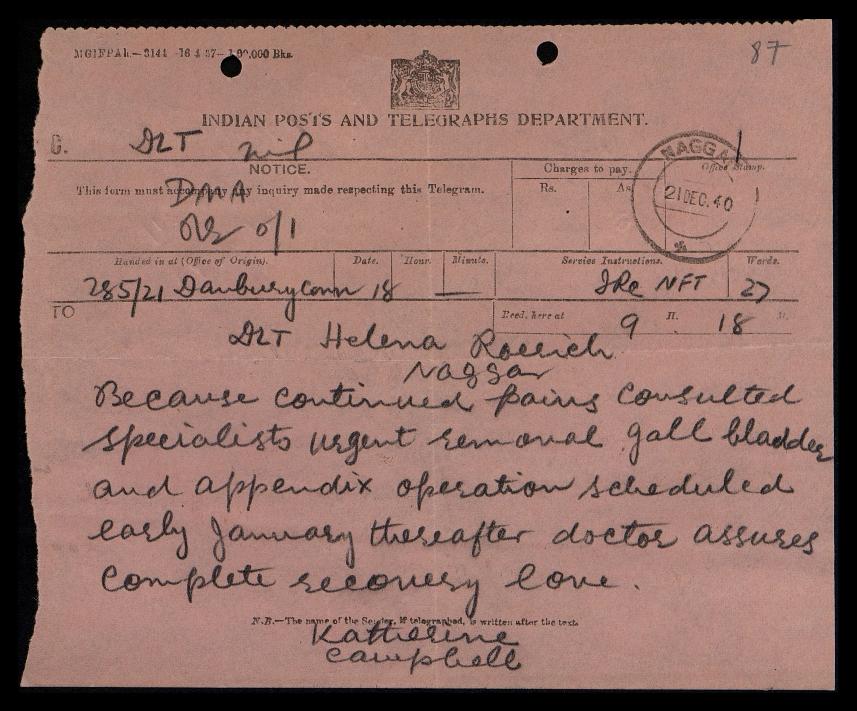 87
INDIAN POSTS AND TELEGRAPHS DEPARTMENT.
C. DLT
NOTICE.
This form must accompany any inquiry made respecting this Telegram.
Charges to pay.
Rs. As.
Office Stamp.
NAGGAR
21 DEC. 40
DMA
Handed in at (Office of Origin). Date. Hour. Minute. Service Instructions. Words.
285/21 Danbury Conn 18 — NFT 27
TO
Recd. here at 9 H. 18 M.
DLT Helena Roerich
Naggar
Because continued pains consulted
specialists urgent removal gall bladder
and appendix operation scheduled
early January thereafter doctor assures
complete recovery love.
N.B.—The name of the Sender, if telegraphed, is written after the text.
Katherine
Campbell